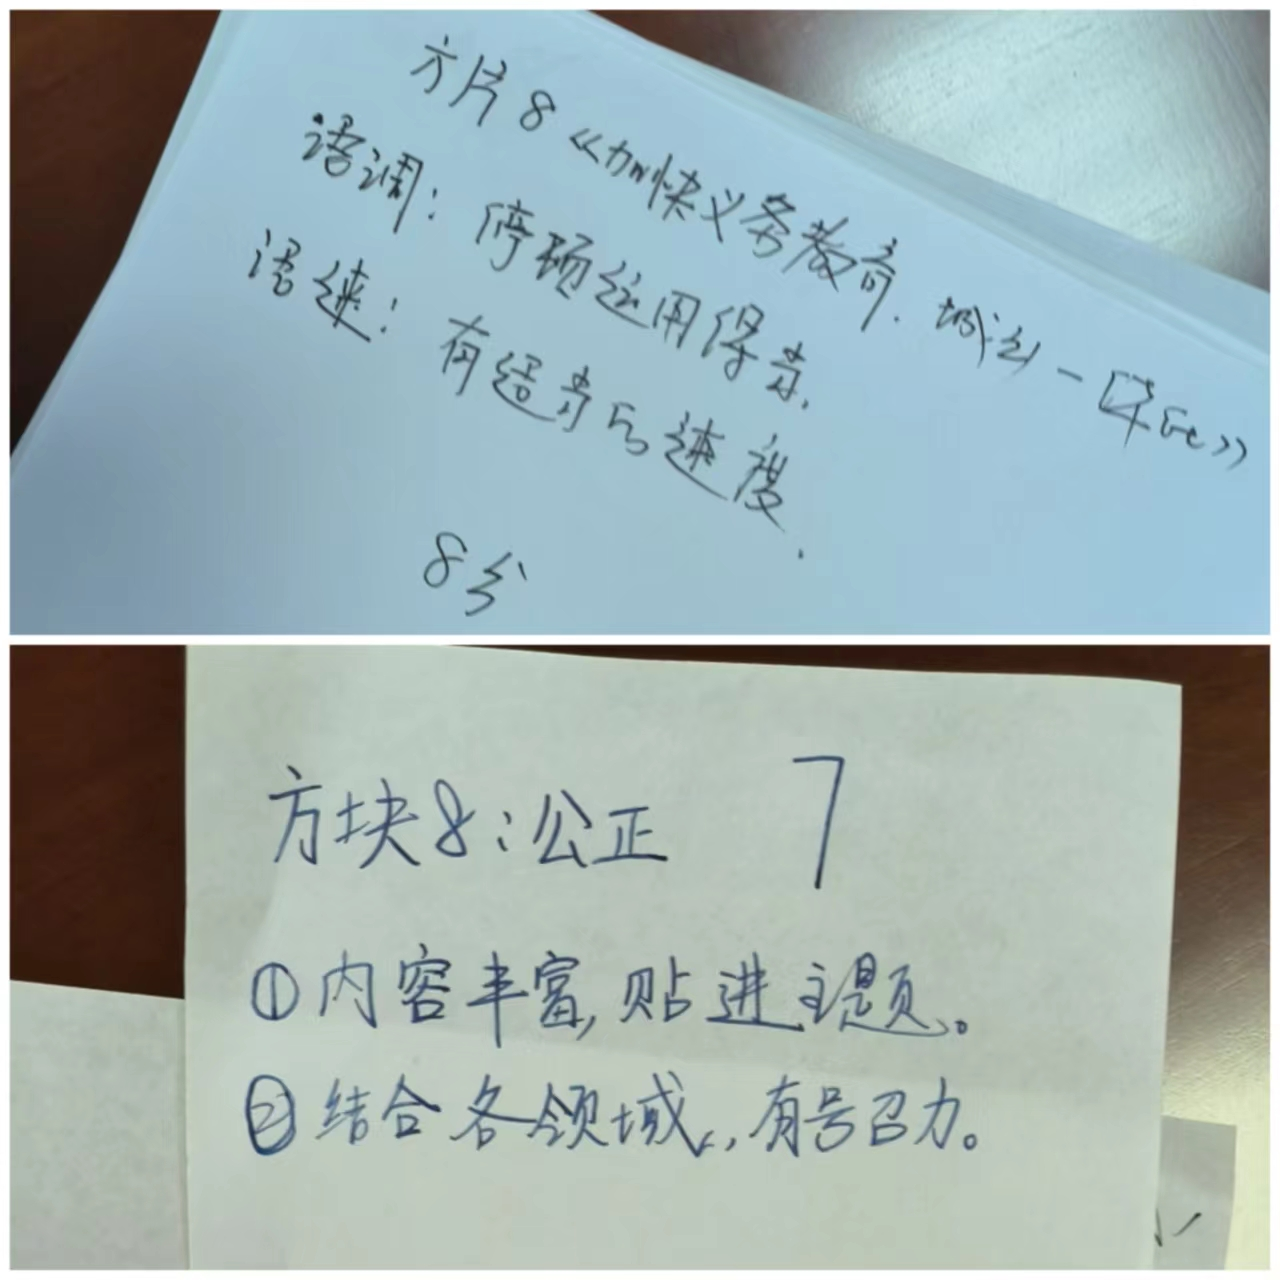 方片8《加快义务教育.城乡一体化》
语调：停顿运用得当.
语速：有适当的速度.
8分
方块8：公正 7
①内容丰富,贴进主题。
②结合各领域,有号召力。